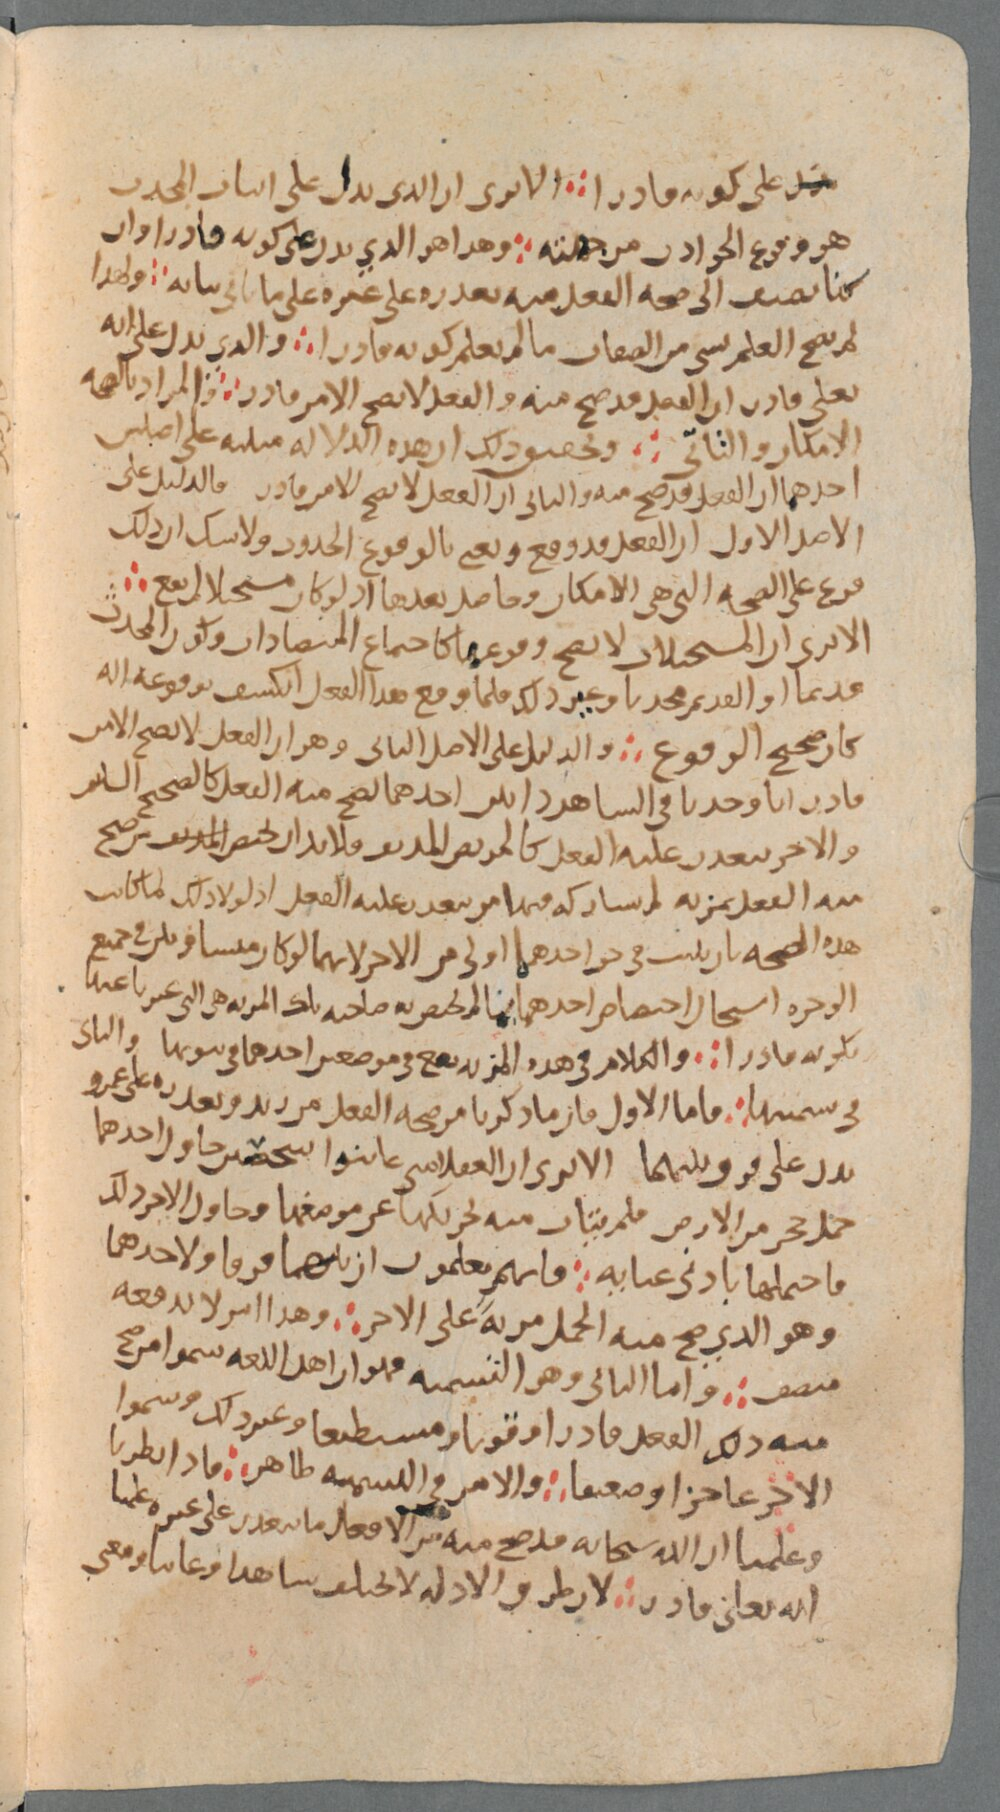 يدل على كونه قادرا ∴ الا ترى ان الذي يدل على اثبات المحدث
هو وقوع الحوادث من جهته ∴ وهذا هو الذي يدل على كونه قادرا وان
كنا نضيف الى صحة الفعل منه تعذره على غيره على ما يأتي بيانه ∴ ولهذا
لم يصح العلم بشي من الصفات ما لم يعلم كونه قادرا ∴ والذي يدل على انه
تعلى قادر ان الفعل قد صح منه والفعل لا يصح الا من قادر ∴ والمراد بالصحة
الامكان والتأتي ∴ وتحقيق ذلك ان هذه الدلالة مبنية على اصلين
احدهما ان الفعل قد صح منه والثاني ان الفعل لا يصح الا من قادر فالدليل على
الاصل الاول ان الفعل قد وقع ونعني بالوقوع الحدوث ولا شك ان ذلك
فرع على الصحة التي هي الامكان وحاصل بعدها اذ لو كان مستحيلا لم يقع ∴
الا ترى ان المستحيلات لا يصح وقوعها كاجتماع المتضادات وكون المحدث
قديما او القديم محدثا وغير ذلك فلما وقع هذا الفعل انكشف بوقوعه انه
كان صحيح الوقوع ∴ والدليل على الاصل الثاني وهو ان الفعل لا يصح الا من
قادر انا وجدنا في الشاهد ذاتين احدهما يصح منه الفعل كالصحيح السليم
والاخر يتعذر عليه الفعل كالمريض المدنف فلا بد ان يختص من صح
منه الفعل بمزية لم يشاركه فيها من يتعذر عليه الفعل اذ لولا ذلك لما كانت
هذه الصحة بان يثبت في حق احدهما اولى من الاخر لانهما لو كان متساويين في جميع
الوجوه استحال اختصاص احدهما بما لم يختص به صاحبه وتلك المزية هي التي عبرنا عنها
بكونه قادرا ∴ والكلام في هذه المزية يقع في موضعين احدهما في ثبوتها والثاني
في تسميتها ∴ فاما الاول فان ما ذكرنا من صحة الفعل من زيد وتعذره على عمرو
يدل على فرق بينهما الا ترى ان العقلا متى عاينوا شخصين حاول احدهما
حمل حجر من الارض فلم يتأت منه تحريكها عن موضعها وحاول الاخر ذلك
فاحتملها بادنى عناية ∴ فانهم يعلمون ان بينهما فرقا ولاحدهما
وهو الذي صح منه الحمل مزية على الاخر ∴ وهذا امر لا يدفعه
منصف ∴ واما الثاني وهو التسمية فهو ان اهل اللغة سموا من صح
منه ذلك الفعل قادرا وقويا ومستطيعا وغير ذلك وسموا
الاخر عاجزا وضعيفا ∴ والامر في التسمية ظاهر ∴ فاذا نظرنا
وعلمنا ان الله سبحانه قد صح منه من الافعال ما يتعذر على غيره علمنا
انه تعالى قادر ∴ لان طرق الادلة لا تختلف شاهدا وغائبا ومعنى